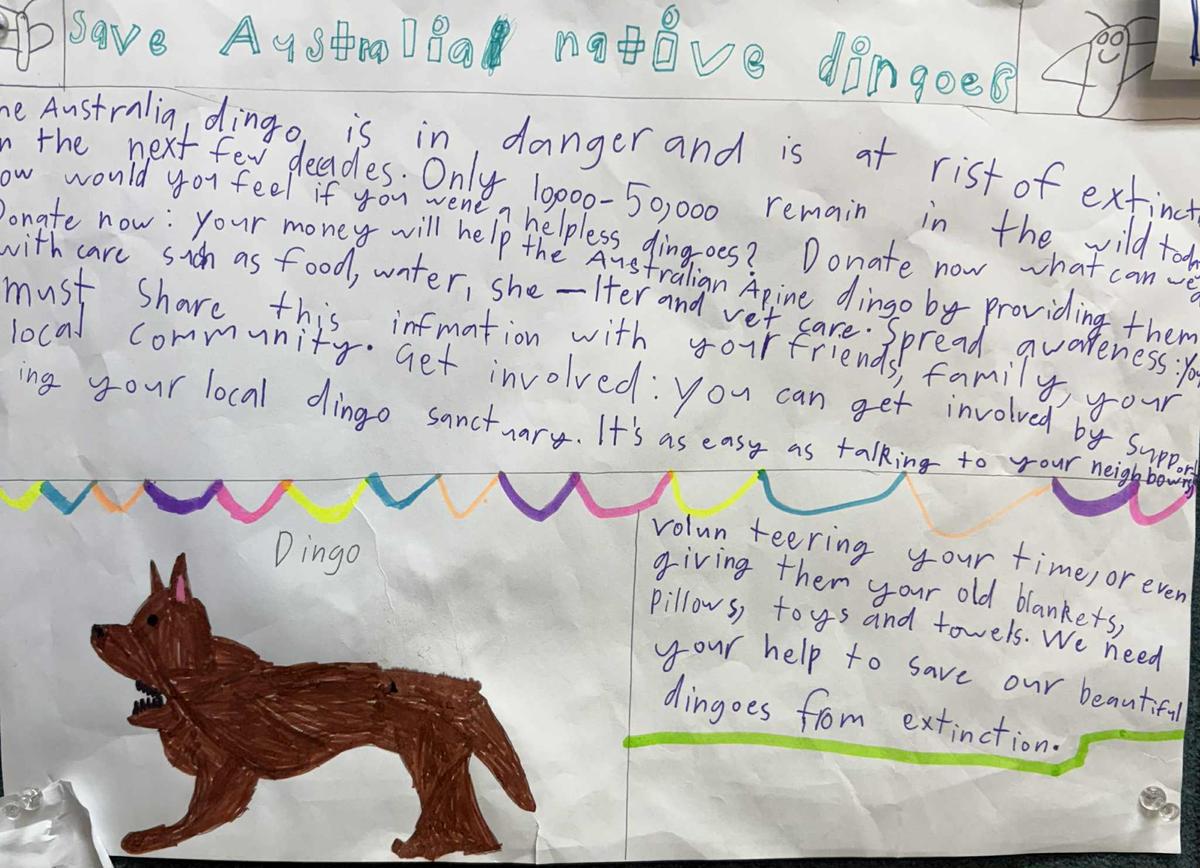 save Australia native dingoes
he Australia dingo is in danger and is at rist of extinct
n the next few decades. Only 10000-50,000 remain in the wild today
ow would you feel if you were a helpless dingoes? Donate now what can we
Donate now: Your money will help the Australian Apine dingo by providing them
with care such as food, water, she-lter and vet care. Spread awareness: You
must share this infmation with your friends, family, your
local community. Get involved: You can get involved by support
ing your local dingo sanctuary. It's as easy as talking to your neighbours
Dingo
volun teering your time, or even
giving them your old blankets,
pillows, toys and towels. We need
your help to save our beautiful
dingoes from extinction.